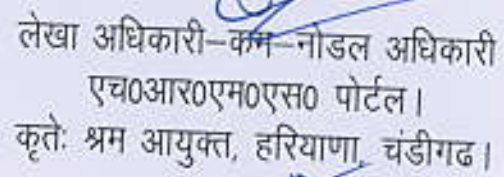 लेखा अधिकारी–कम–नोडल अधिकारी
एच0आर0एम0एस0 पोर्टल।
कृतेः श्रम आयुक्त, हरियाणा, चंडीगढ।